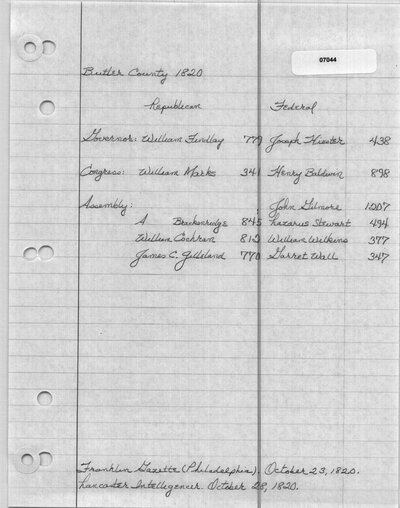 07044
Butler County 1820
Republican Federal
Governor: William Findlay 779 Joseph Hiester 438
Congress: William Marks 341 Henry Baldwin 898
Assembly: John Gilmore 1007
A Brackenridge 845 Lazarus Stewart 494
William Cochran 812 William Wilkins 377
James C. Gilleland 770 Garret Wall 347
Franklin Gazette (Philadelphia). October 23, 1820.
Lancaster Intelligencer. October 28, 1820.